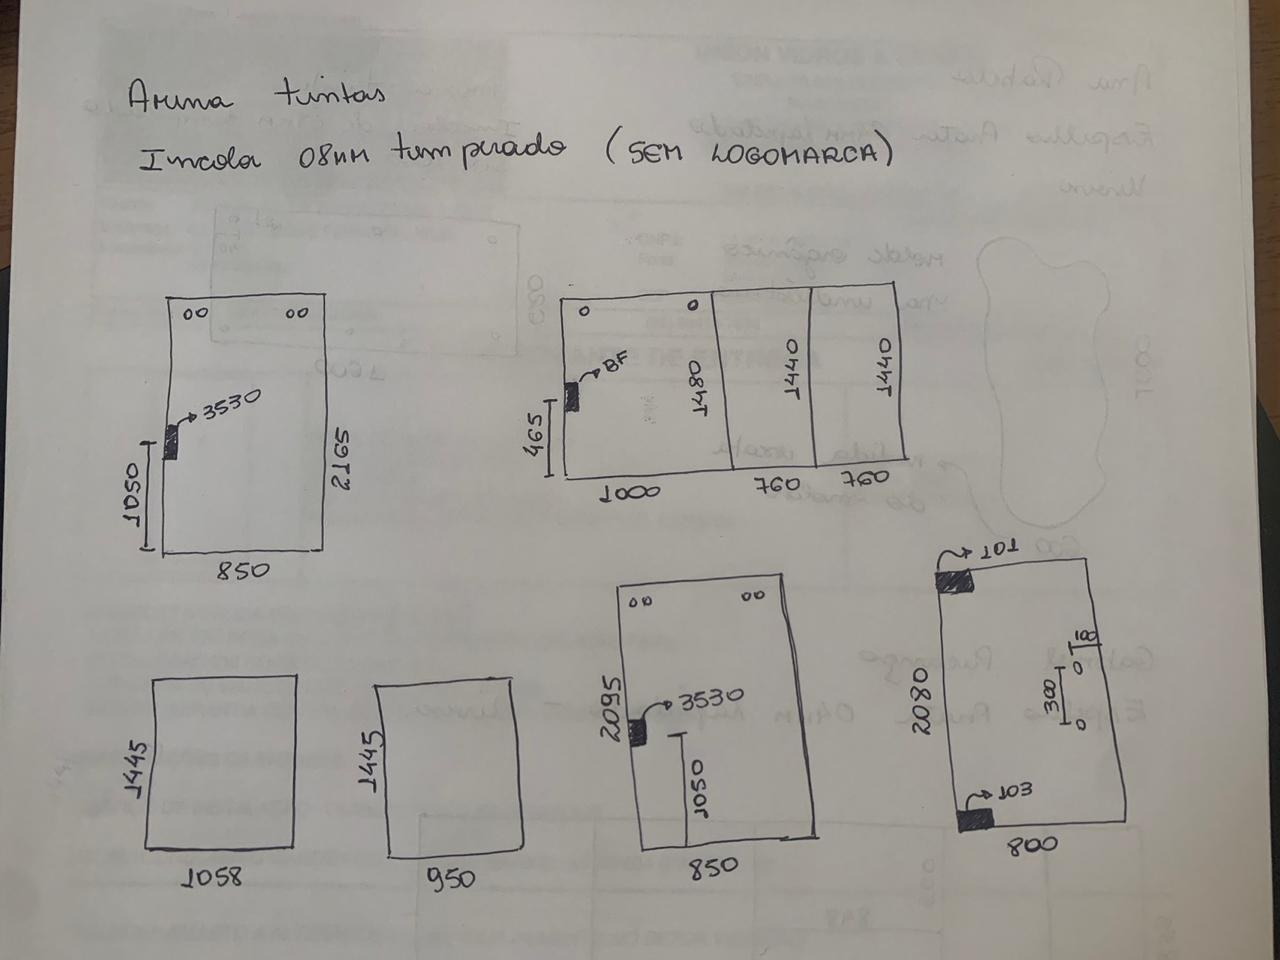 Aruna tintas
Incola 08mm temperado (SEM LOGOMARCA)
3530
1050
2165
850
BF
465
1480
1440
1440
1000
760
760
1445
1058
1445
950
2095
3530
1050
850
101
100
300
2080
103
800